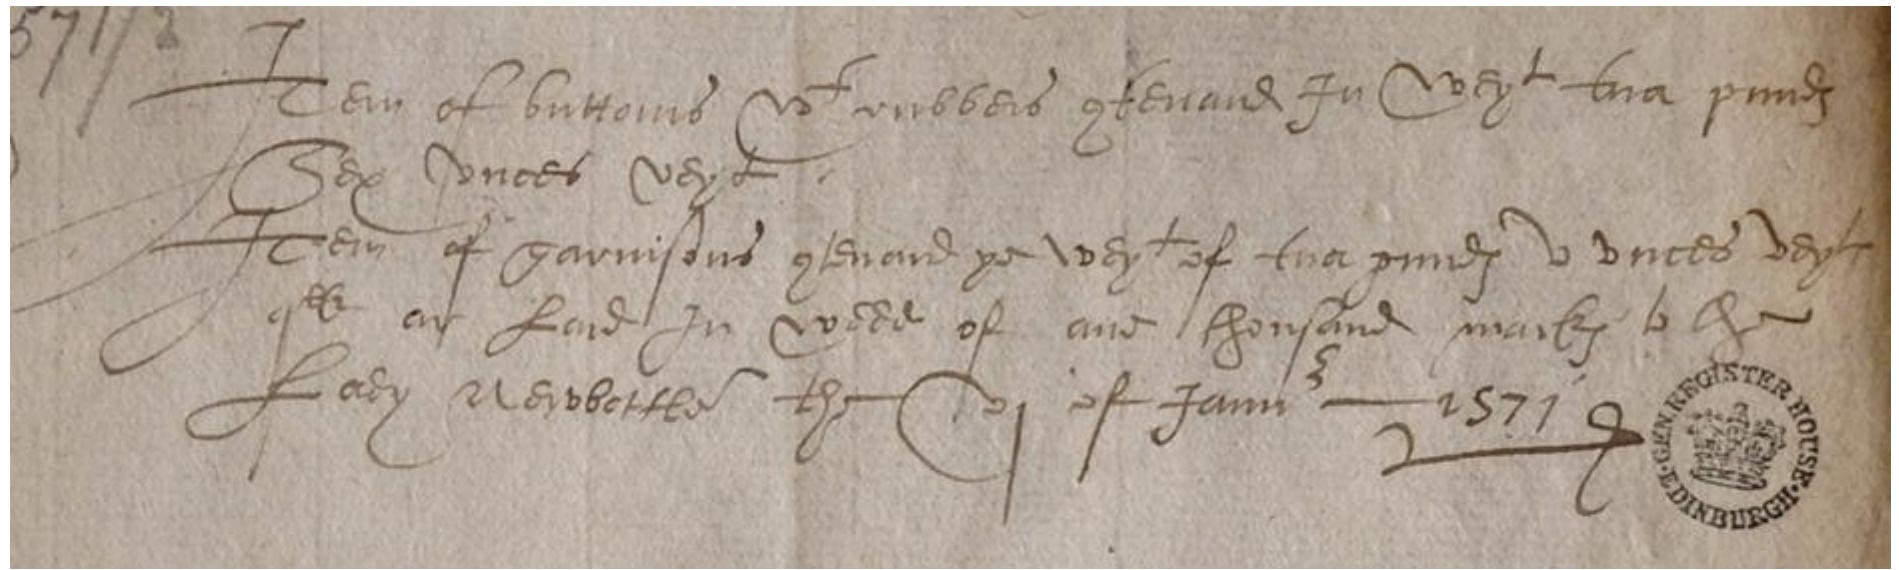 1571/2
Item of buttonis wt rubbeis qtenand in weyt tua pundis
Sex vnces veyt
Item of garnisonis qtenand ye weyt of tua pundis v vnces veyt
qlk ar laid in wed of ane thousand markis to the
Lady Newbottle the vj of Januar 1571
GEN. REGISTER HOUSE · EDINBURGH ·